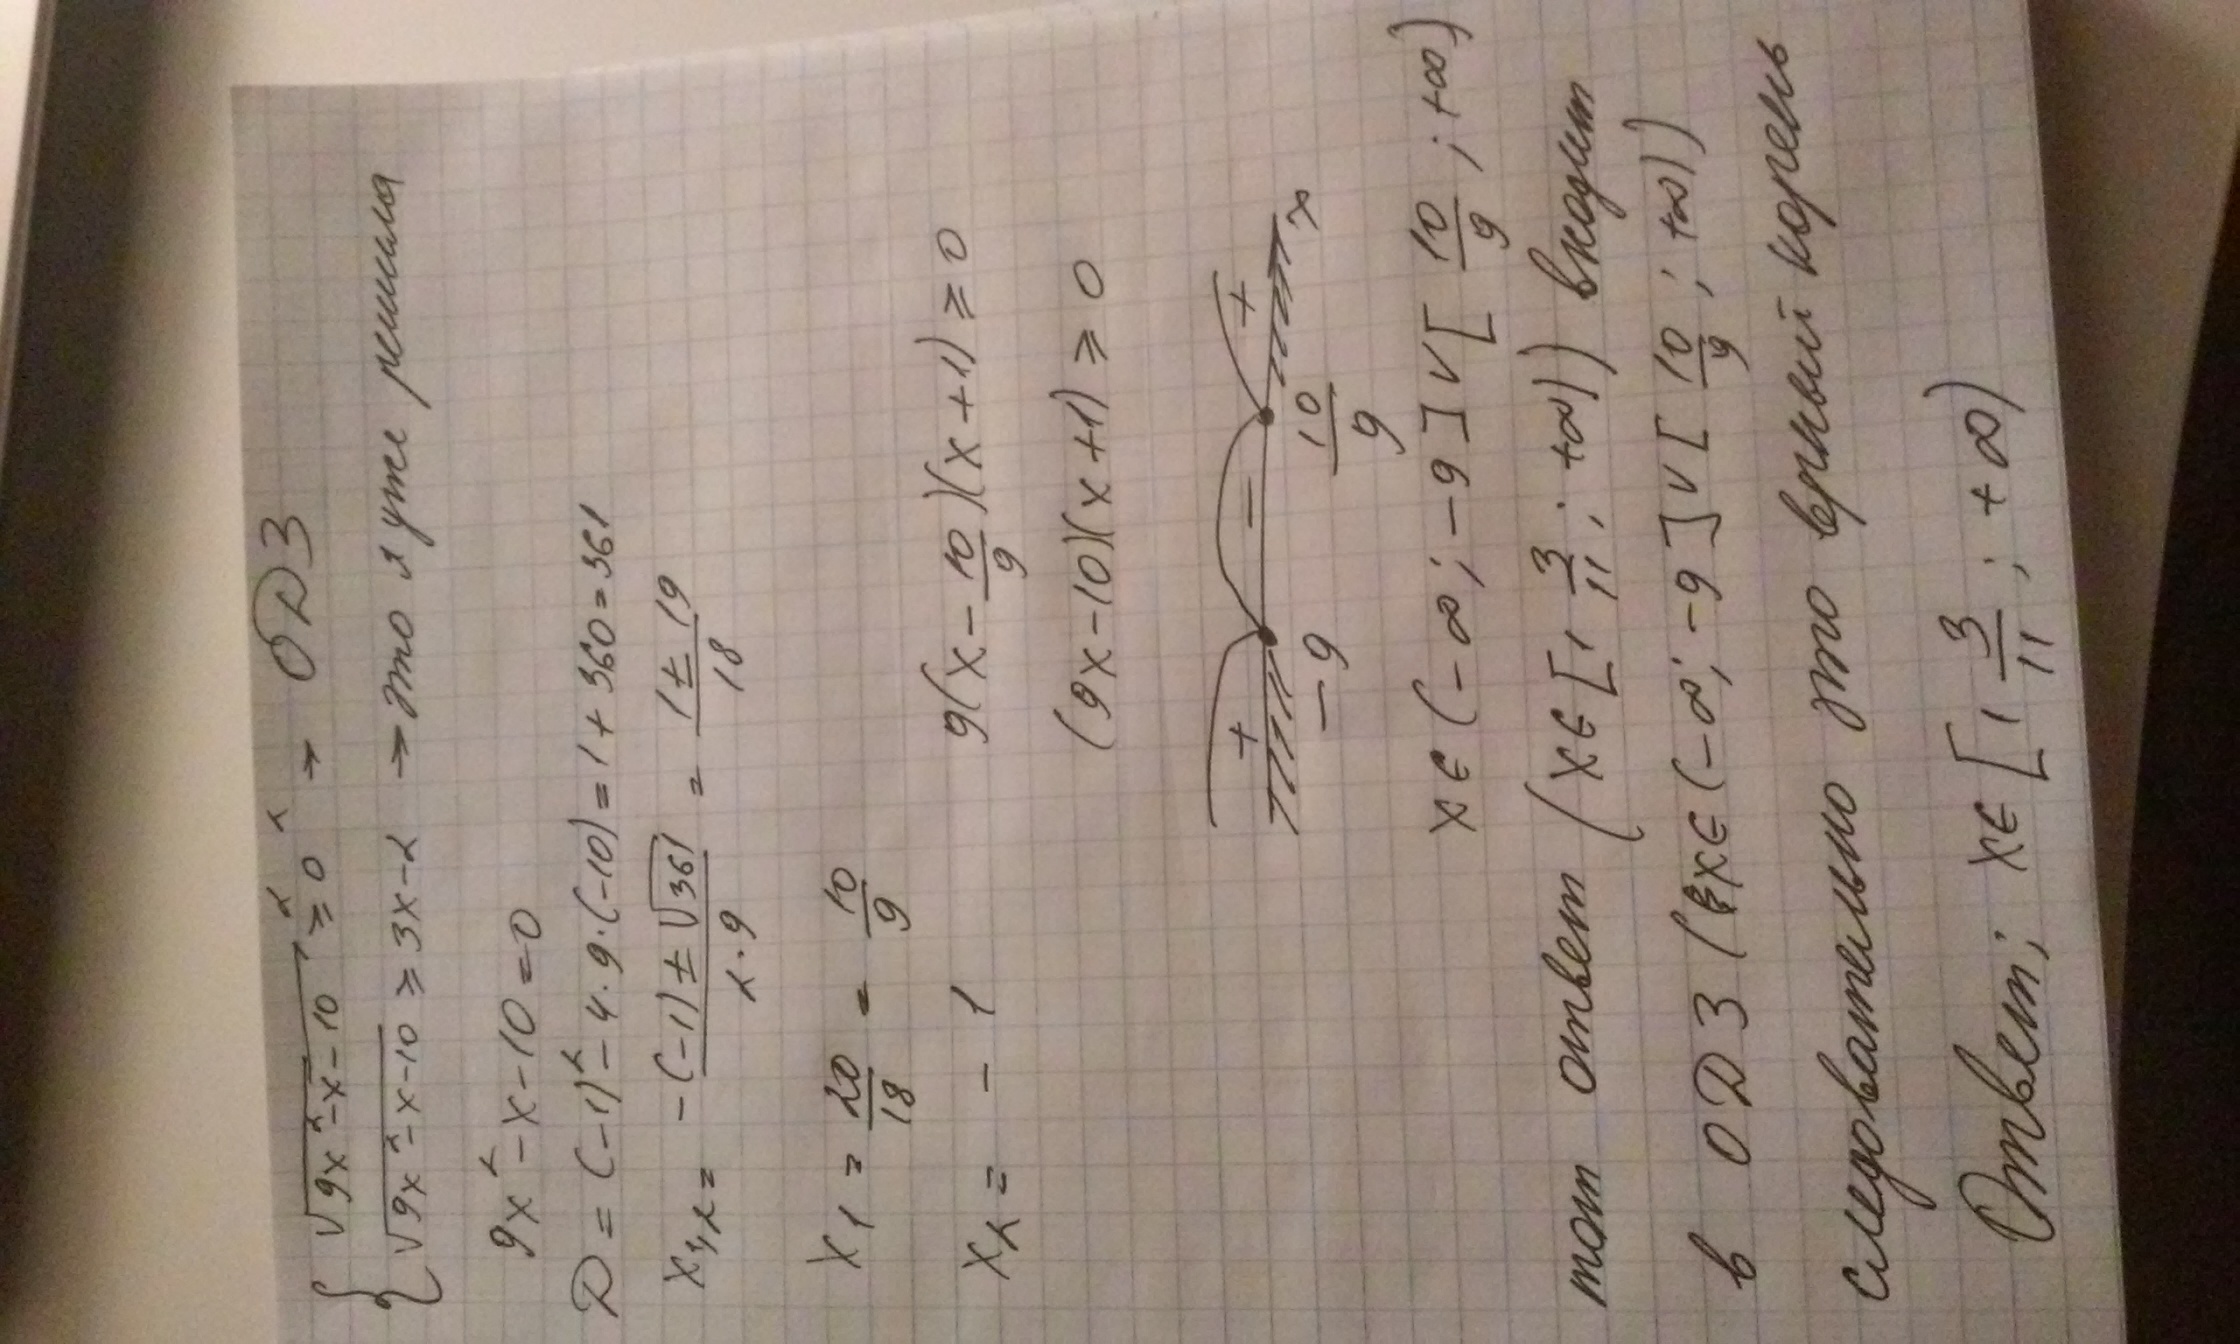 √9x²-x-10 ² ≥ 0 ² → ОДЗ
√9x²-x-10 ≥ 3x-2 → это я уже решила
9x²-x-10=0
D = (-1)² - 4·9·(-10) = 1 + 360 = 361
x₁,₂ = -(-1) ± √361 / 2·9 = 1 ± 19 / 18
x₁ = 20/18 = 10/9
x₂ = - 1
9(x - 10/9)(x+1) ≥ 0
(9x-10)(x+1) ≥ 0
+ - +
-9 10/9 x
x ∈ (-∞; -9] ∨ [10/9; +∞)
тот ответ (x ∈ [1 3/11; +∞)) входит
в ОДЗ (x ∈ (-∞; -9] ∨ [10/9; +∞))
следовательно это верный корень
Ответ: x ∈ [1 3/11; +∞)